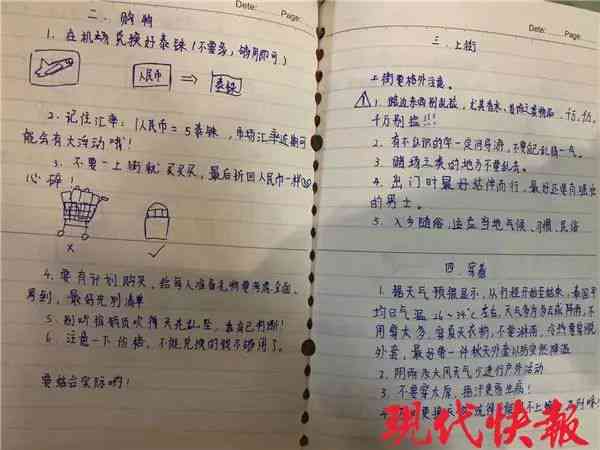 Date:
Page:
二、购物
1、在机场兑换好泰铢(不要多,够用即可)
人民币
泰铢
2、记住汇率:1人民币=5泰铢,市场汇率近期可
能会有大浮动哦!
3、不要一上街就买买买,最后折回人民币一样
心碎!
4、要有计划购买,给每人准备礼物要考虑全面、
周到,最好先列清单
5、别听推销员吹得天花乱坠,靠自己判断!
6、注意一下价格,不能兑换的钱不够用了。
要结合实际哟!
Date:
Page:
三、上街
上街要格外注意。
1、路边东西别乱拉,尤其香水、首饰之类物品,千万、
千万别拉!!!
2、有不认识的字一定问导游,不要乱猜一气。
3、赌场之类的地方不要乱去。
4、出门时最好结伴而行,最好还要有强壮
的男士。
5、入乡随俗,适应当地气候、习惯、民俗
四 穿着
1、据天气预报显示,从行程开始至结束,泰国平
均日气温26~34℃左右,天气多为多云或阵雨,不
用穿太多,穿夏天衣物,不要淋雨,冷热要穿脱
外套,最好带一件秋天外套以防突然降温
2、阴雨及大风天气少进行户外活动
3、不要穿太厚,捂汗更易生病!
4、
现代快报